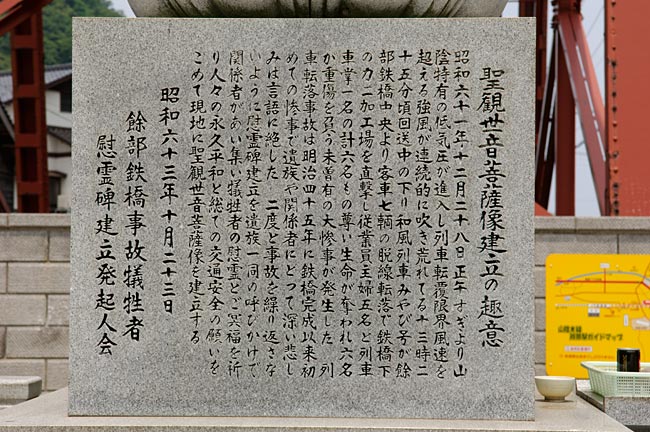 聖観世音菩薩像建立の趣意
昭和六十一年十二月二十八日正午すぎより山
陰特有の低気圧が進入し列車転覆限界風速を
超える強風が連続的に吹き荒れてる十三時二
十五分頃回送中の下り和風列車みやび号が餘
部鉄橋中央より客車七輌の脱線転落で鉄橋下
のカニ加工場を直撃し従業員主婦五名と列車
車掌一名の計六名もの尊い生命が奪われ六名
か重傷を負う未曽有の大惨事が発生した 列
車転落事故は明治四十五年に鉄橋完成以来初
めての惨事で遺族や関係者にとつて深い悲し
みは言語に絶した 二度と事故を繰り返さな
いように慰霊碑建立を遺族一同の呼びかけで
関係者があい集い犠牲者の慰霊とご冥福を祈
り人々の永久平和と総ての交通安全の願いを
こめて現地に聖観世音菩薩像を建立する
昭和六十三年十月二十三日
餘部鉄橋事故犠牲者
慰霊碑建立発起人会
山陰本線